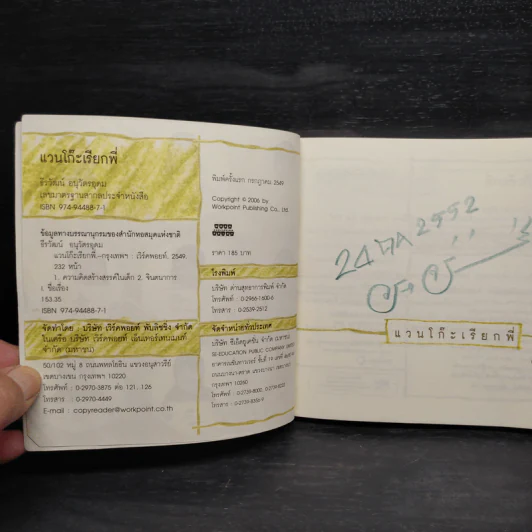 แวนโก๊ะเรียกพี่
ธีรวัฒน์ อนุวัตรอุดม
เลขมาตรฐานสากลประจำหนังสือ
ISBN 974-94488-7-1
ข้อมูลทางบรรณานุกรมของสำนักหอสมุดแห่งชาติ
ธีรวัฒน์ อนุวัตรอุดม
แวนโก๊ะเรียกพี่.--กรุงเทพฯ : เวิร์คพอยท์, 2549.
232 หน้า
1. ความคิดสร้างสรรค์ในเด็ก 2. จินตนาการ.
I. ชื่อเรื่อง
153.35
ISBN 974-94488-7-1
จัดทำโดย : บริษัท เวิร์คพอยท์ พับลิชชิ่ง จำกัด
ในเครือ บริษัท เวิร์คพอยท์ เอ็นเทอร์เทนเมนท์
จำกัด (มหาชน)
50/102 หมู่ 8 ถนนพหลโยธิน แขวงอนุสาวรีย์
เขตบางเขน กรุงเทพฯ 10220
โทรศัพท์ : 0-2970-3875 ต่อ 121, 126
โทรสาร : 0-2970-4449
E-mail : copyreader@workpoint.co.th
พิมพ์ครั้งแรก กรกฎาคม 2549
Copyright © 2006 by
Workpoint Publishing Co., Ltd.
ราคา 185 บาท
โรงพิมพ์
บริษัท ด่านสุทธาการพิมพ์ จำกัด
โทรศัพท์ : 0-2966-1600-6
โทรสาร : 0-2539-2512
จัดจำหน่ายทั่วประเทศ
บริษัท ซีเอ็ดยูเคชั่น จำกัด (มหาชน)
SE-EDUCATION PUBLIC COMPANY LIMITED
กรุงเทพฯ 10260
2552
แวนโก๊ะเรียกพี่